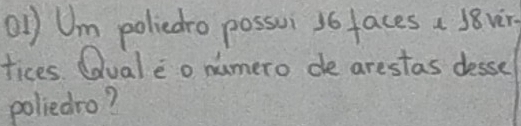 01) Um poliedro possui 16 faces e 18 vér-
tices. Qual é o número de arestas desse
poliedro?